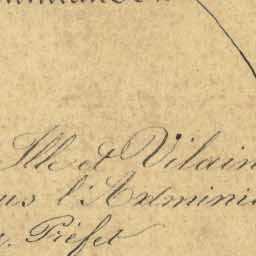 Ille et Vilain
us l'Adminis
Préfet